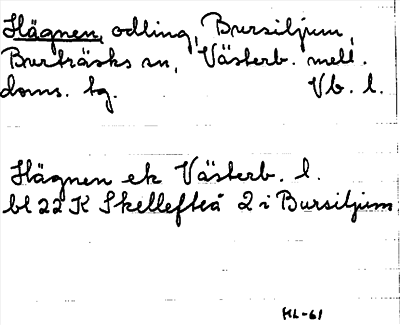 Hägnen, odling, Bursiljum,
Burträsks sn, Västerb. mell.
doms. tg. Vb. l.
Hägnen ek Västerb. l.
bl 22 K Skellefteå 2 i Bursiljum
HL-61